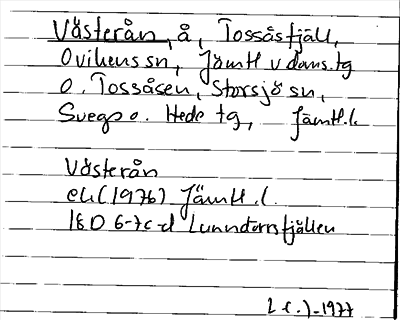 Västerån, å, Tossåsfjäll,
Ovikens sn, Jämtl v doms. tg
o. Tossåsen, Storsjö sn,
Svegs o. Hede tg, Jämtl. l.
Västerån
ek (1976) Jämtl. l.
18D 6-7c-d Lunndörrsfjällen
1977